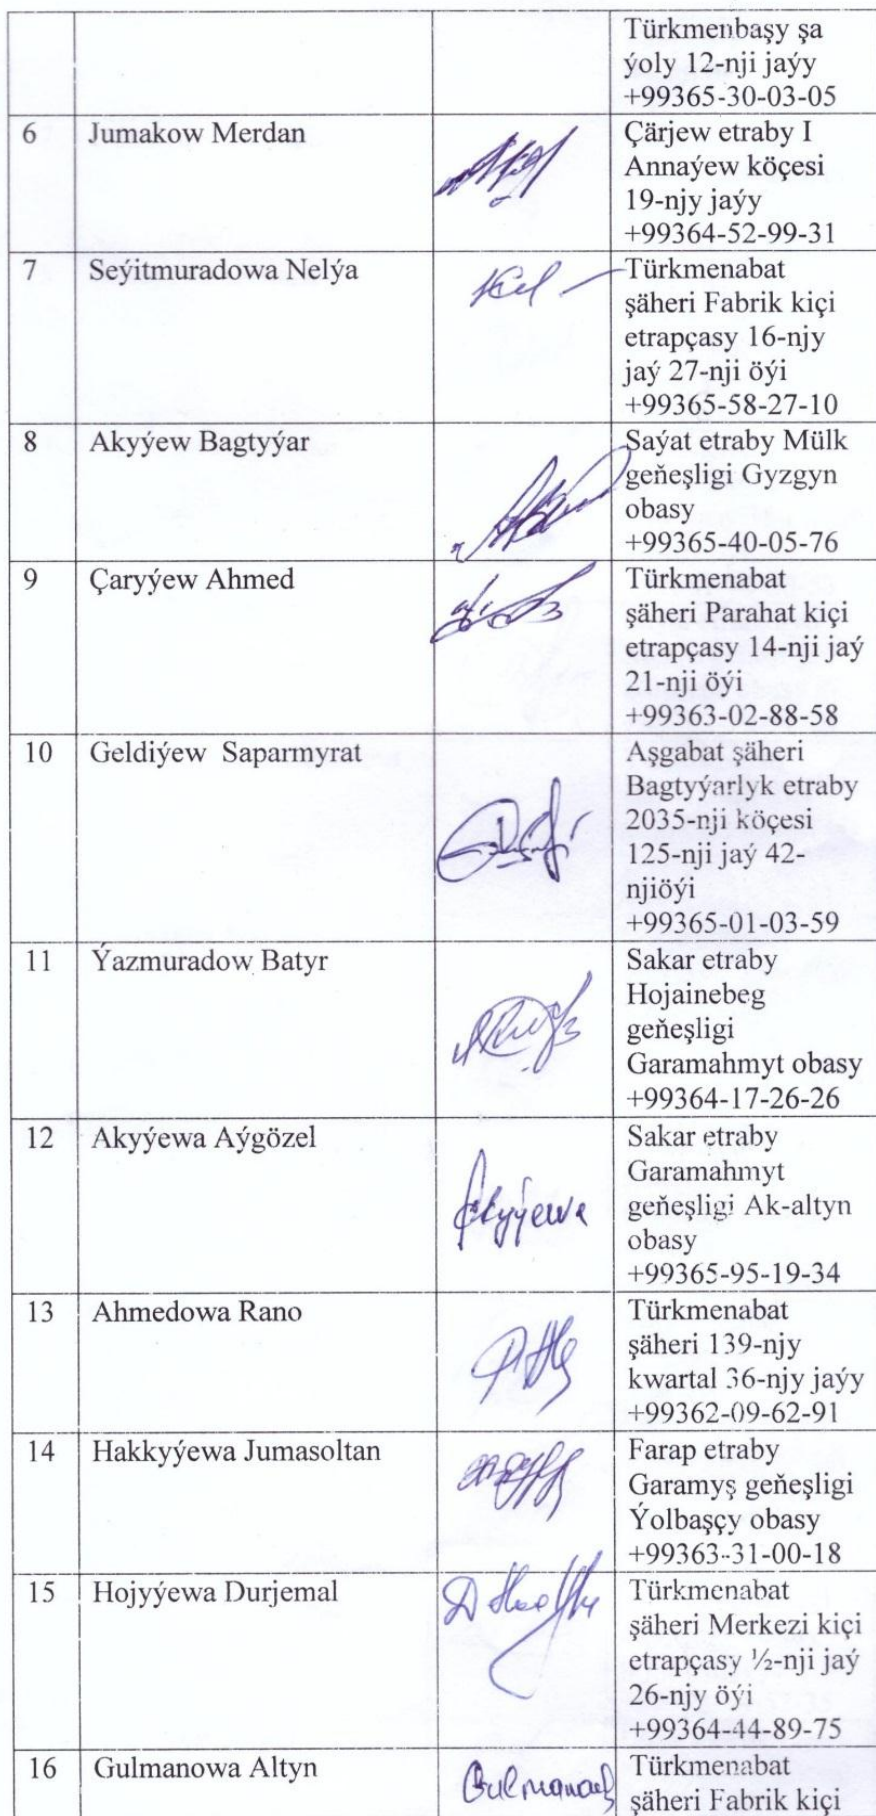 Türkmenbaşy şa
ýoly 12-nji jaýy
+99365-30-03-05
6 Jumakow Merdan Çärjew etraby I
Annaýew köçesi
19-njy jaýy
+99364-52-99-31
7 Seýitmuradowa Nelýa Türkmenabat
şäheri Fabrik kiçi
etrapçasy 16-njy
jaý 27-nji öýi
+99365-58-27-10
8 Akyýew Bagtyýar Saýat etraby Mülk
geňeşligi Gyzgyn
obasy
+99365-40-05-76
9 Çaryýew Ahmed Türkmenabat
şäheri Parahat kiçi
etrapçasy 14-nji jaý
21-nji öýi
+99363-02-88-58
10 Geldiýew Saparmyrat Aşgabat şäheri
Bagtyýarlyk etraby
2035-nji köçesi
125-nji jaý 42-
njiöýi
+99365-01-03-59
11 Ýazmuradow Batyr Sakar etraby
Hojainebeg
geňeşligi
Garamahmyt obasy
+99364-17-26-26
12 Akyýewa Aýgözel Sakar etraby
Garamahmyt
Akyýewa geňeşligi Ak-altyn
obasy
+99365-95-19-34
13 Ahmedowa Rano Türkmenabat
şäheri 139-njy
kwartal 36-njy jaýy
+99362-09-62-91
14 Hakkyýewa Jumasoltan Farap etraby
Garamyş geňeşligi
Ýolbaşçy obasy
+99363-31-00-18
15 Hojyýewa Durjemal Türkmenabat
şäheri Merkezi kiçi
etrapçasy ½-nji jaý
26-njy öýi
+99364-44-89-75
16 Gulmanowa Altyn Türkmenabat
şäheri Fabrik kiçi